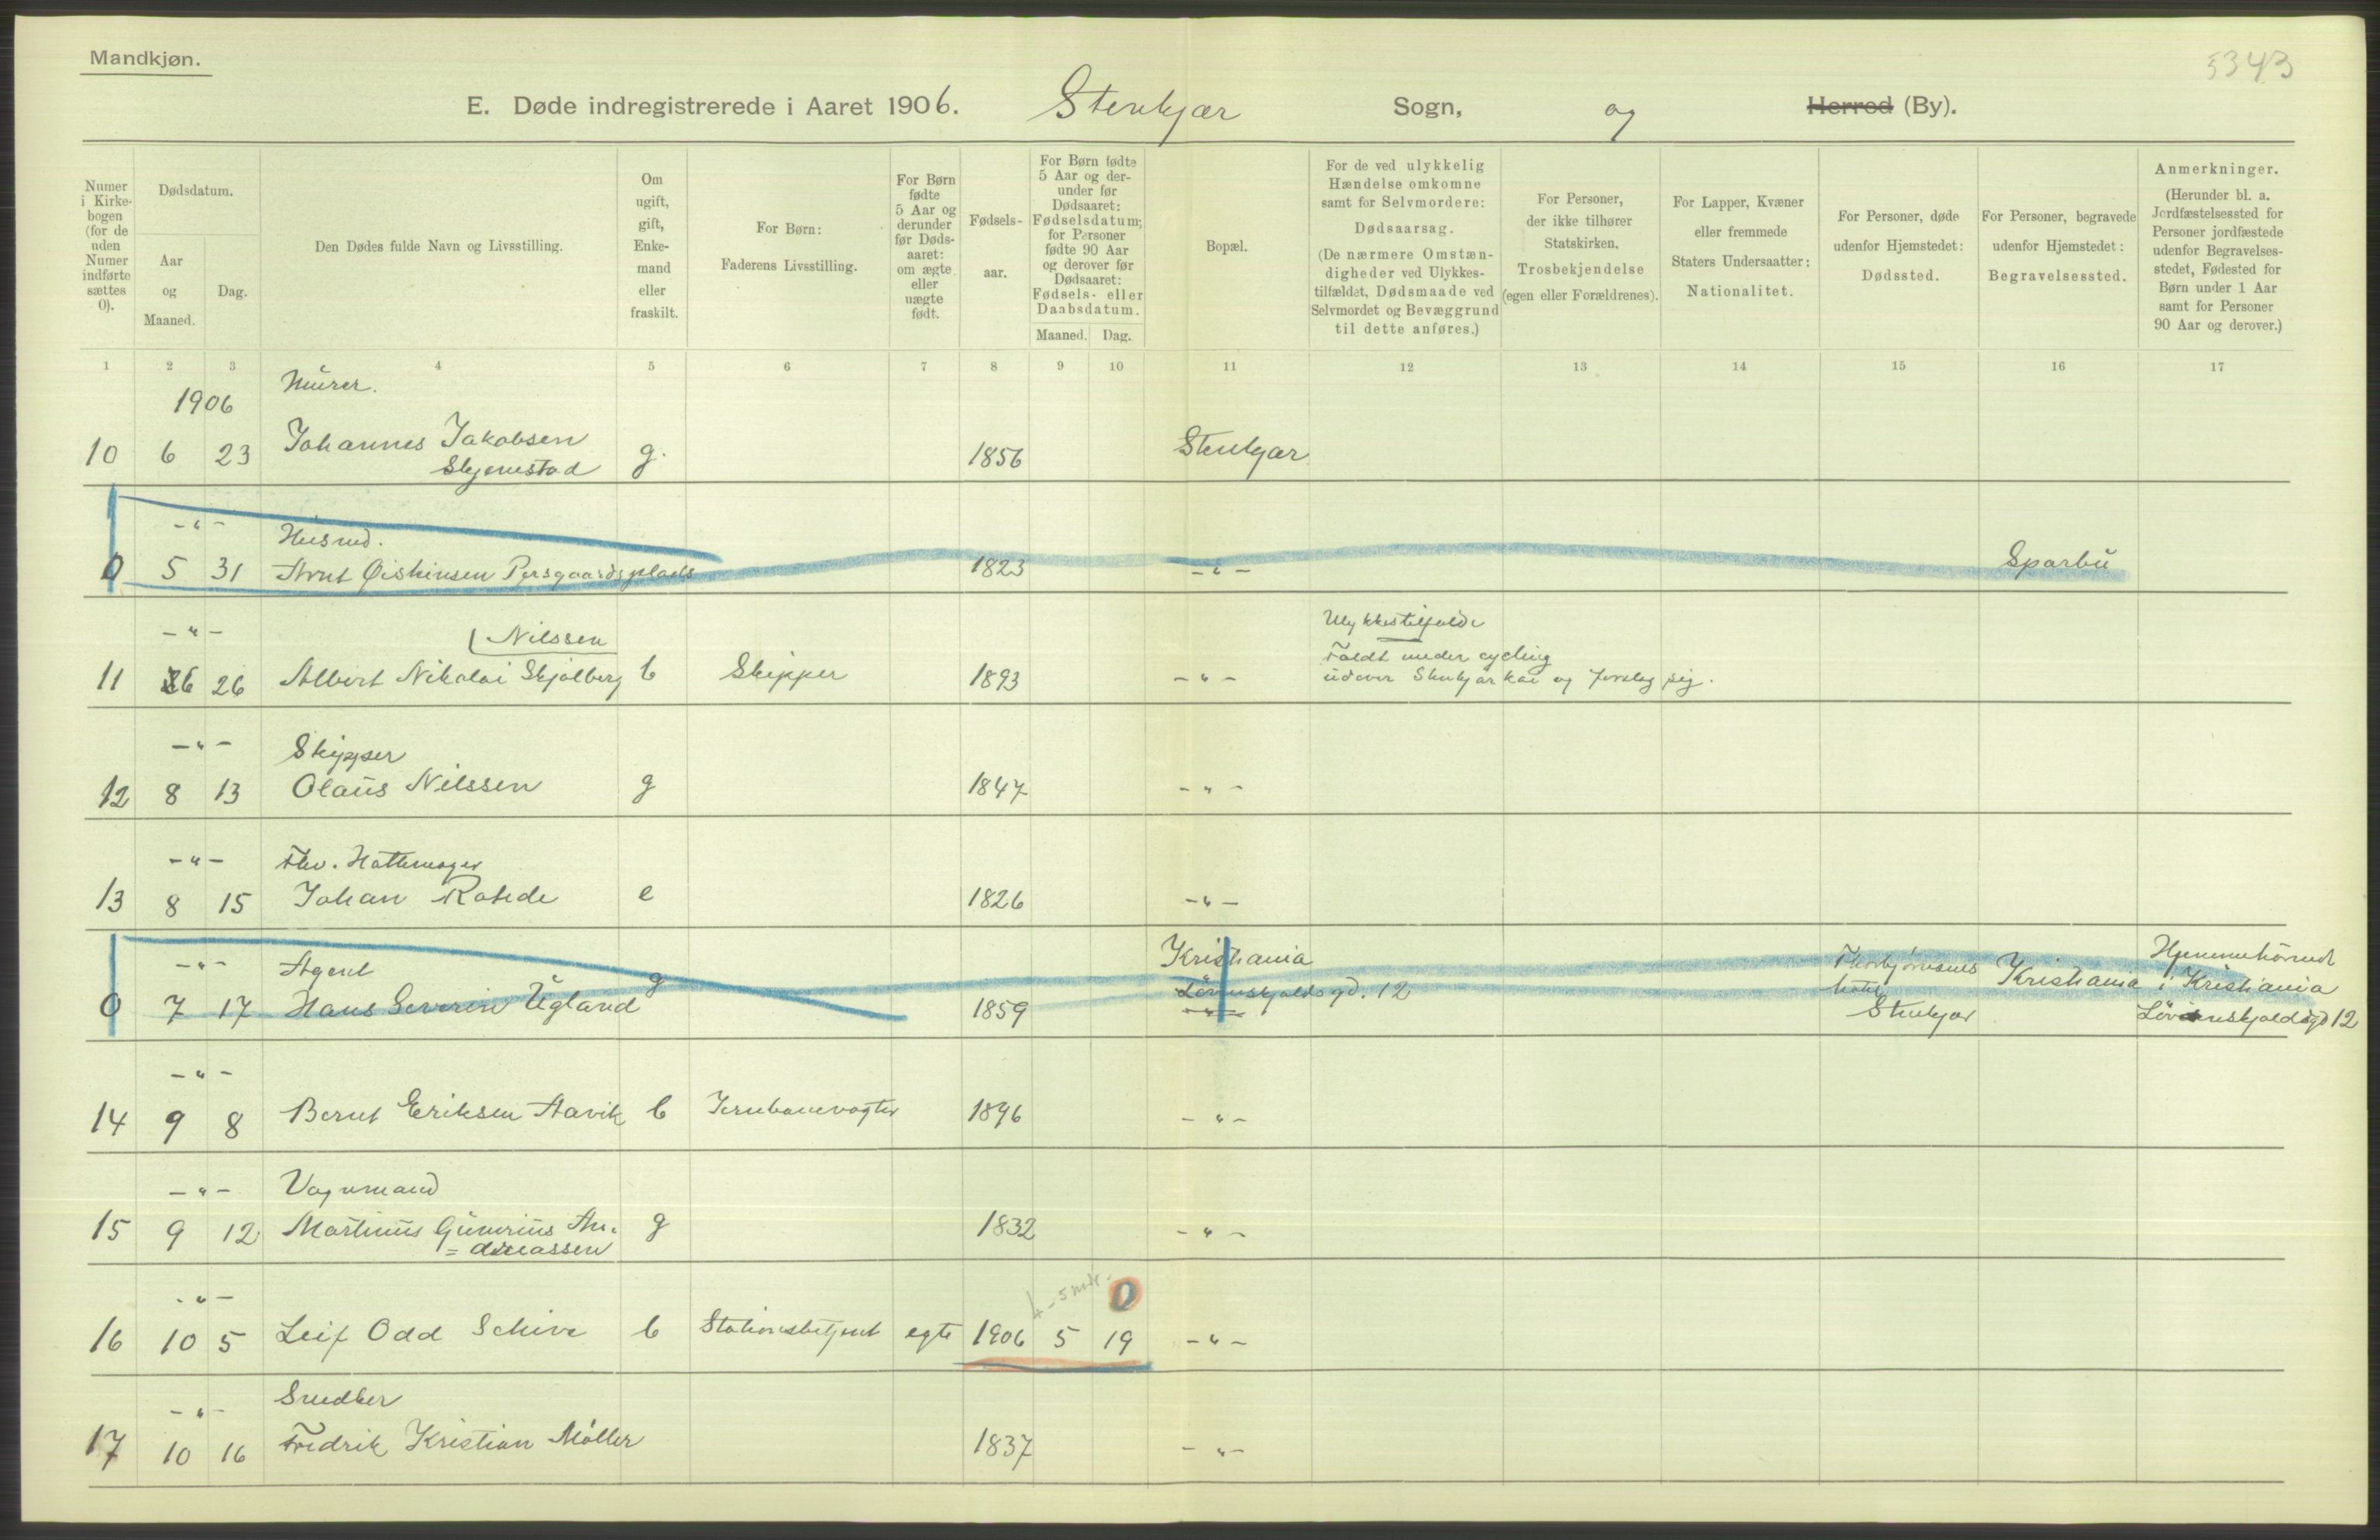 Mandkjøn.
5343
E. Døde indregistrerede i Aaret 1906. Stenkjær Sogn, og Herred (By).
Numer i Kirkebogen (for de uden Numer indførte sættes 0).
Dødsdatum.
Aar og Maaned.
Dag.
Den Dødes fulde Navn og Livsstilling.
Om ugift, gift, Enkemand eller fraskilt.
For Børn: Faderens Livsstilling.
For Børn fødte 5 Aar og derunder før Dødsaaret: om ægte eller uægte født.
Fødselsaar.
For Børn fødte 5 Aar og derunder før Dødsaaret: Fødselsdatum; for Personer fødte 90 Aar og derover før Dødsaaret: Fødsels- eller Daabsdatum.
Maaned. Dag.
Bopæl.
For de ved ulykkelig Hændelse omkomne samt for Selvmordere: Dødsaarsag. (De nærmere Omstændigheder ved Ulykkestilfældet, Dødsmaade ved Selvmordet og Bevæggrund til dette anføres.)
For Personer, der ikke tilhører Statskirken, Trosbekjendelse (egen eller Forældrenes).
For Lapper, Kvæner eller fremmede Staters Undersaatter: Nationalitet.
For Personer, døde udenfor Hjemstedet: Dødssted.
For Personer, begravede udenfor Hjemstedet: Begravelsessted.
Anmerkninger. (Herunder bl. a. Jordfæstelsessted for Personer jordfæstede udenfor Begravelsesstedet, Fødested for Børn under 1 Aar samt for Personer 90 Aar og derover.)
1 2 3 4 5 6 7 8 9 10 11 12 13 14 15 16 17
1906 Murer.
10 6 23 Johannes Jakobsen g. 1856 Stenkjær
Skjemstad
-"- Husmd.
0 5 31 Arnt Øistensen Persgaardsplads 1823 -"- Sparbu
-"- (Nilssen Ulykkestilfælde
Faldt under cycling
11 6 26 Albert Nikolai Skjølberg b Skipper 1893 -"- udover Stenkjær kai og forslog sig.
-"- Skipper
12 8 13 Olaus Nilssen g 1847 -"-
-"- Fhv. Hattemager
13 8 15 Johan Rohde e 1826 -"-
-"- Agent g Kristiania Thorbjørnsens Hjemmehørende
0 7 17 Hans Severin Ugland 1859 Løvenskjoldsgd. 12 hotel Kristiania i Kristiania
-"- Stenkjær Løvenskjoldsgd 12
-"-
14 9 8 Bernt Eriksen Aavik b Jernbanevogter 1896 -"-
-"- Vognmand
15 9 12 Martinus Gunerius An- g 1832 -"-
=dreassen
-"- 4-5 mdr. 0
16 10 5 Leif Odd Schive b Stationsbetjent egte 1906 5 19 -"-
-"- Snedker
17 10 16 Fredrik Kristian Møller 1837 -"-